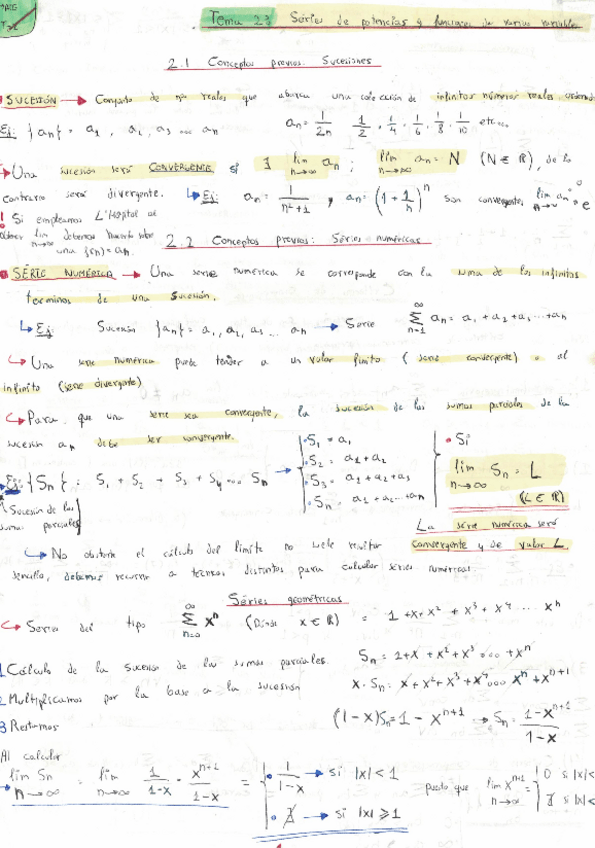 Tema 23 Séries de potencias y funciones de varias variables
2.1 Conceptos previos: Sucesiones
SUCESIÓN → Conjunto de nºs reales que abarca una colección de infinitos números reales ordenados
Ej: {an} = a1, a2, a3 ... an an = 1/2n 1/2, 1/4, 1/6, 1/8, 1/10 etc...
→ Una sucesión será CONVERGENTE si ∃ lim n→∞ an ; lim n→∞ an = N (N ∈ ℝ), de lo
contrario será divergente. → Ej: an = 1/(n²+1) , an = (1 + 1/n)^n son convergentes, lim n→∞ an = 0 e
! Si empleamos L'Hôpital al
obtener lim n→∞ debemos hacerlo sobre
una f(n) = an.
2.2 Conceptos previos: Séries numéricas
SÉRIE NUMÉRICA → Una serie numérica se corresponde con la suma de los infinitos
términos de una sucesión.
→ Ej: Sucesión {an} = a1, a2, a3 ... an → Serie ∑ n=1 ∞ an = a1 + a2 + a3 ... + an
→ Una serie numérica puede tender a un valor finito (serie convergente) o al
infinito (serie divergente)
→ Para que una serie sea convergente, la sucesión de las sumas parciales de la
sucesión an debe ser convergente.
Ej: {Sn} : S1 + S2 + S3 + S4 ... Sn →
Sucesión de las
sumas parciales
S1 = a1
S2 = a1 + a2
S3 = a1 + a2 + a3
Sn = a1 + a2 ... + an
Si
lim n→∞ Sn = L
(L ∈ ℝ)
La serie numérica será
convergente y de valor L.
→ No obstante el cálculo del límite no suele resultar
sencillo, debemos recurrir a técnicas distintas para calcular séries numéricas
Séries geométricas
→ Series del tipo ∑ n=0 ∞ x^n (Donde x ∈ ℝ) = 1 + x + x² + x³ + x⁴ ... x^n
1 Cálculo de la sucesión de las sumas parciales Sn = 1 + x + x² + x³ ... + x^n
2 Multiplicamos por la base a la sucesión x · Sn = x + x² + x³ + x⁴ ... x^n + x^(n+1)
3 Restamos (1-x)Sn = 1 - x^(n+1) → Sn = (1 - x^(n+1))/(1-x)
Al calcular
lim n→∞ Sn = lim n→∞ 1/(1-x) - x^(n+1)/(1-x) = { 1/(1-x) → si |x| < 1
∄ → si |x| ≥ 1
puesto que lim n→∞ x^(n+1) = { 0 si |x| <
∄ si |x|